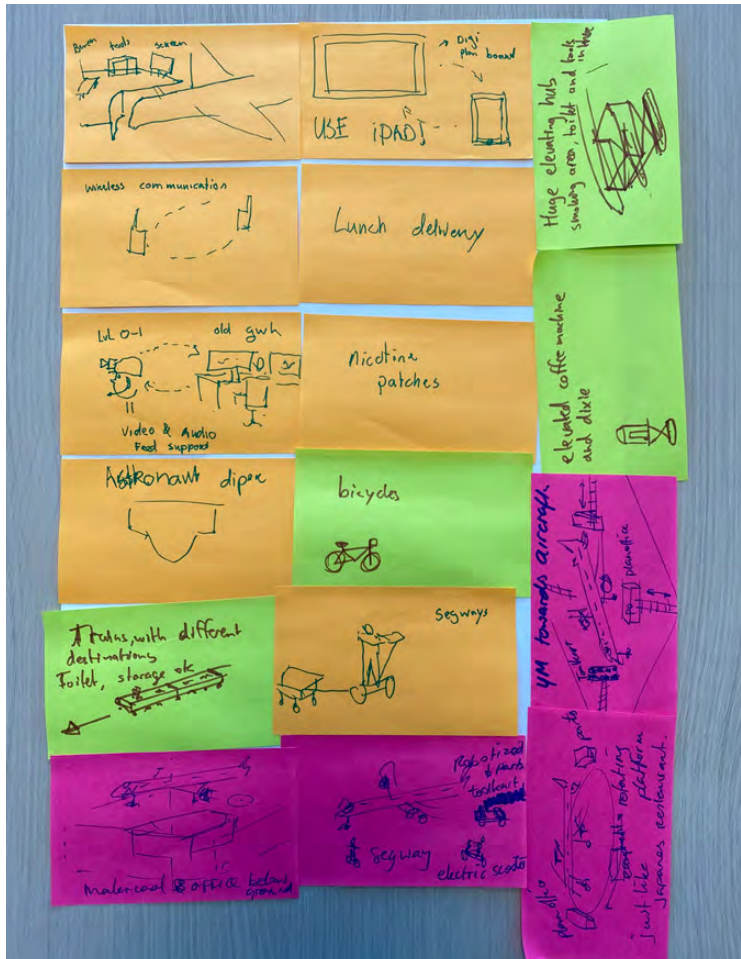 Bench tools screen
Digi
plan board
USE iPAD!
Huge elevating hub
smoking area, toilet and tools
in there
wireless communication
Lunch delivery
elevated coffee machine
and dixie
Lvl 0-1
old gwh
Video & Audio
Feed support
Nicotine
patches
Astronaut diper
bicycles
4M towards aircraft
planoffice
Trains, with different
destinations
Toilet, storage etc
segways
Material & office below
ground
Robotized
parts
toolkart
segway
electric scooter
plan office
parts
rotating
platform
Just like
Japanes restaurant.